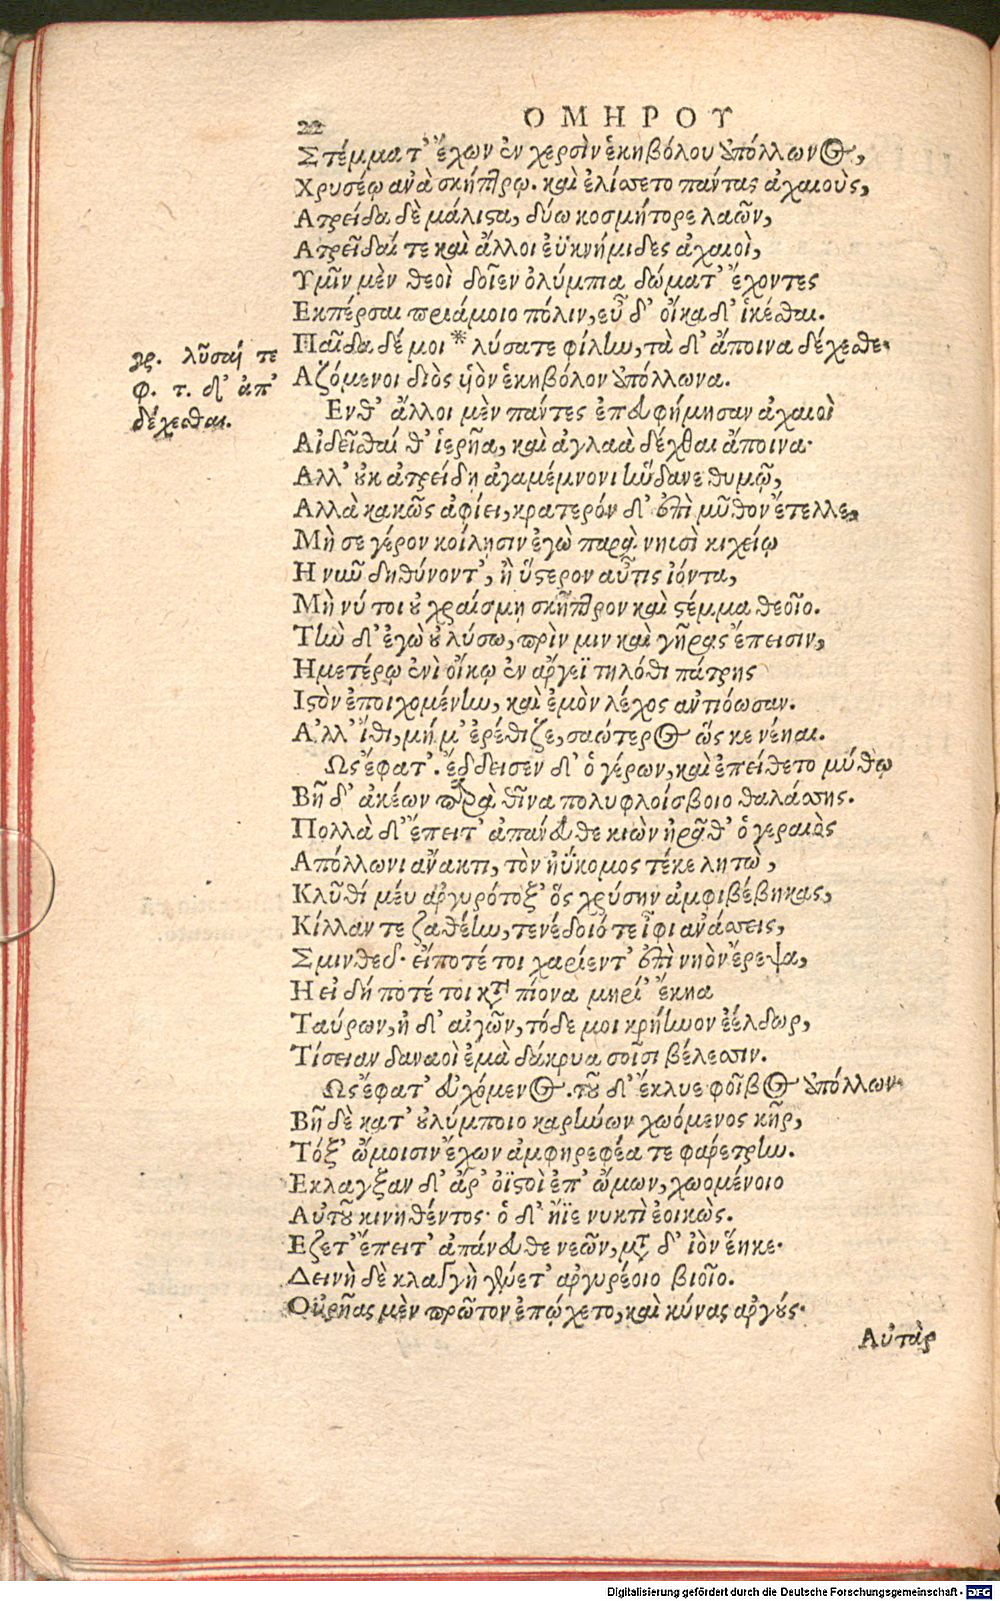 22
ΟΜΗΡΟΥ
Στέμματ' ἔχων ἐν χερσὶν ἑκηβόλου Ἀπόλλωνος,
Χρυσέῳ ἀνὰ σκήπτρῳ. καὶ ἐλίσσετο πάντας ἀχαιοὺς,
Ατρείδα δὲ μάλιστα, δύω κοσμήτορε λαῶν,
Ατρεῖδαί τε καὶ ἄλλοι ἐϋκνήμιδες ἀχαιοὶ,
Υμῖν μὲν θεοὶ δοῖεν ὀλύμπια δώματ' ἔχοντες
Εκπέρσαι πριάμοιο πόλιν, εὖ δ' οἴκαδ' ἱκέσθαι.
Παῖδα δέ μοι * λύσατε φίλην, τὰ δ' ἄποινα δέχεσθε·
Αζόμενοι διὸς υἱὸν ἑκηβόλον Ἀπόλλωνα.
γρ. λῦσαί τε
φ. τ. δ' ἀπ'
δέχεσθαι.
Ενθ' ἄλλοι μὲν πάντες ἐπευφήμησαν ἀχαιοὶ
Αἰδεῖσθαί θ' ἱερῆα, καὶ ἀγλαὰ δέχθαι ἄποινα·
Αλλ' οὐκ ἀτρείδη ἀγαμέμνονι ἥνδανε θυμῷ,
Αλλὰ κακῶς ἀφίει, κρατερόν δ' ἐπὶ μῦθον ἔτελλε,
Μὴ σε γέρον κοίλῃσιν ἐγὼ παρὰ νηυσὶ κιχείῳ
Η νῦν δηθύνοντ', ἢ ὕστερον αὖτις ἰόντα,
Μὴ νύ τοι οὐ χραίσμῃ σκῆπτρον καὶ στέμμα θεοῖο.
Τὴν δ' ἐγὼ οὐ λύσω, πρὶν μιν καὶ γῆρας ἔπεισιν,
Ημετέρῳ ἐνὶ οἴκῳ ἐν ἄργεϊ τηλόθι πάτρης
Ιστὸν ἐποιχομένην, καὶ ἐμὸν λέχος ἀντιόωσαν.
Α'λλ' ἴθι, μή μ' ἐρέθιζε, σαώτερος ὥς κε νέηαι.
Ως ἔφατ'. ἔδδεισεν δ' ὁ γέρων, καὶ ἐπείθετο μύθῳ
Βῆ δ' ἀκέων παρὰ θῖνα πολυφλοίσβοιο θαλάσσης.
Πολλὰ δ' ἔπειτ' ἀπάνευθε κιὼν ἠρᾶθ' ὁ γεραιὸς
Απόλλωνι ἄνακτι, τὸν ἠΰκομος τέκε λητὼ,
Κλῦθί μευ ἀργυρότοξ' ὃς χρύσην ἀμφιβέβηκας,
Κίλλαν τε ζαθέην, τενέδοιό τε ἶφι ἀνάσσεις,
Σμινθεῦ· εἴποτέ τοι χαρίεντ' ἐπὶ νηὸν ἔρεψα,
Η εἰ δή ποτέ τοι κατὰ πίονα μηρί' ἔκηα
Ταύρων, ἠ δ' αἰγῶν, τόδε μοι κρήηνον ἐέλδωρ,
Τίσειαν δαναοὶ ἐμὰ δάκρυα σοῖσι βέλεσσιν.
Ως ἔφατ' εὐχόμενος. τοῦ δ' ἔκλυε φοῖβος Ἀπόλλων·
Βῆ δὲ κατ' οὐλύμποιο καρήνων χωόμενος κῆρ,
Τόξ' ὤμοισιν ἔχων ἀμφηρεφέα τε φαρέτρην.
Εκλαγξαν δ' ἄρ' ὀϊστοὶ ἐπ' ὤμων, χωομένοιο
Αὐτοῦ κινηθέντος· ὁ δ' ἤϊε νυκτὶ ἐοικώς.
Εζετ' ἔπειτ' ἀπάνευθε νεῶν, μετὰ δ' ἰὸν ἕηκε·
Δεινὴ δὲ κλαγγὴ γένετ' ἀργυρέοιο βιοῖο.
Οὐρῆας μὲν πρῶτον ἐπῴχετο, καὶ κύνας ἀργούς·
Αὐτὰρ
Digitalisierung gefördert durch die Deutsche Forschungsgemeinschaft - DFG